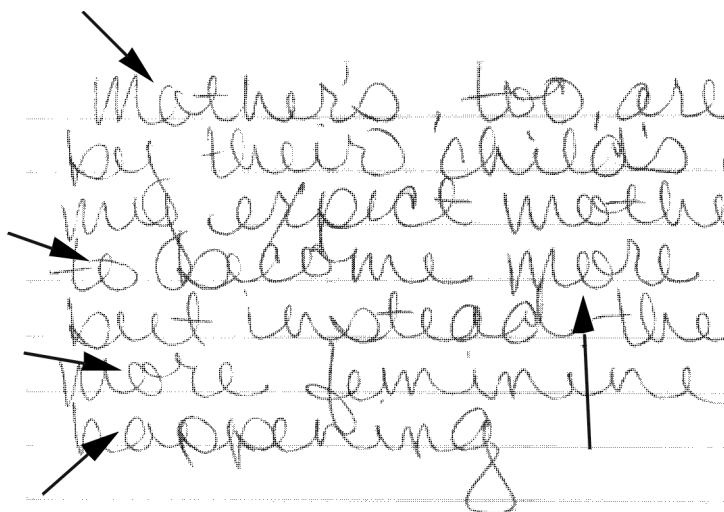 Mother's, too, are
by their child's
my expect mothe
to become more
but instead the
more feminine
happening